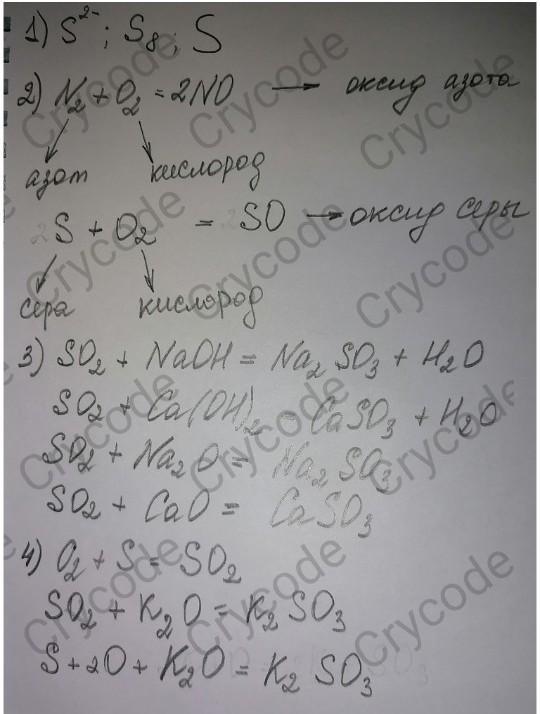 1) S²⁻; S₈; S
2) N₂ + O₂ = 2NO → оксид азота
азот кислород
S + O₂ = SO → оксид серы
сера кислород
3) SO₂ + NaOH = Na₂SO₃ + H₂O
SO₂ + Ca(OH)₂ = CaSO₃ + H₂O
SO₂ + Na₂O = Na₂SO₃
SO₂ + CaO = CaSO₃
4) O₂ + S = SO₂
SO₂ + K₂O = K₂SO₃
S + 2O + K₂O = K₂SO₃
Crycode
Crycode
Crycode
Crycode
Crycode
Crycode
Crycode
Crycode
Crycode
Crycode
Crycode
Crycode